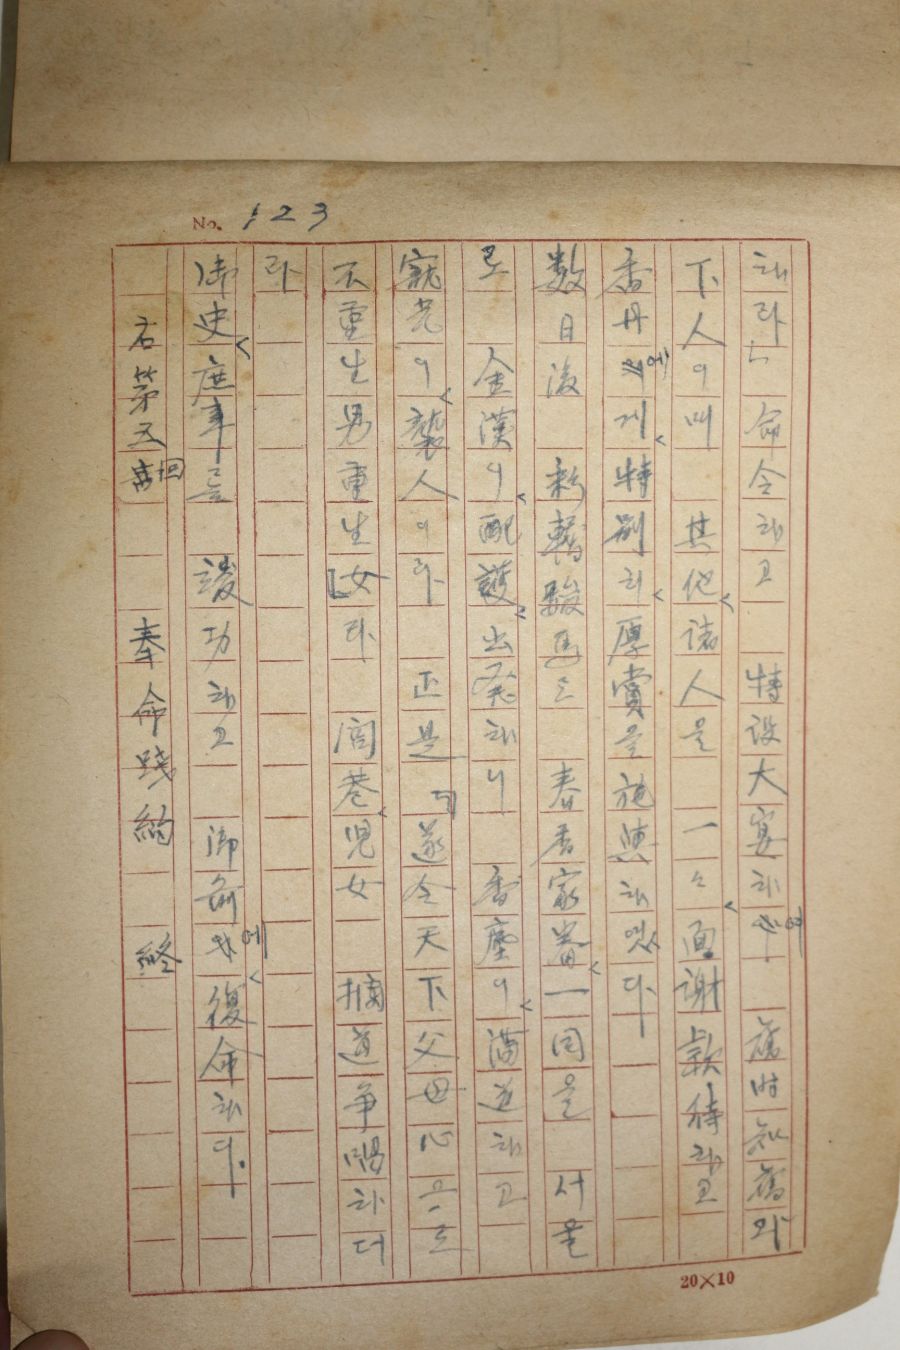 No. 123
하라」 命令하고 特設大宴하여 舊時知舊와
下人이며 其他諸人을 一々面謝款待하고
香丹에게 特別히 厚賞을 施與하였다
数日後 新轎駿馬로 春香家眷一同을 서울
로 金漢이 配護出発하니 香塵이 満道하고
寵光이 襲人이라 正是 遂令天下父母心으로
不重生男重生女라 閭巷児女 摘道争唱하더
라
御史庶事를 竣功하고 御前에 復命하다.
右第五回 奉命踐約 終
20×10